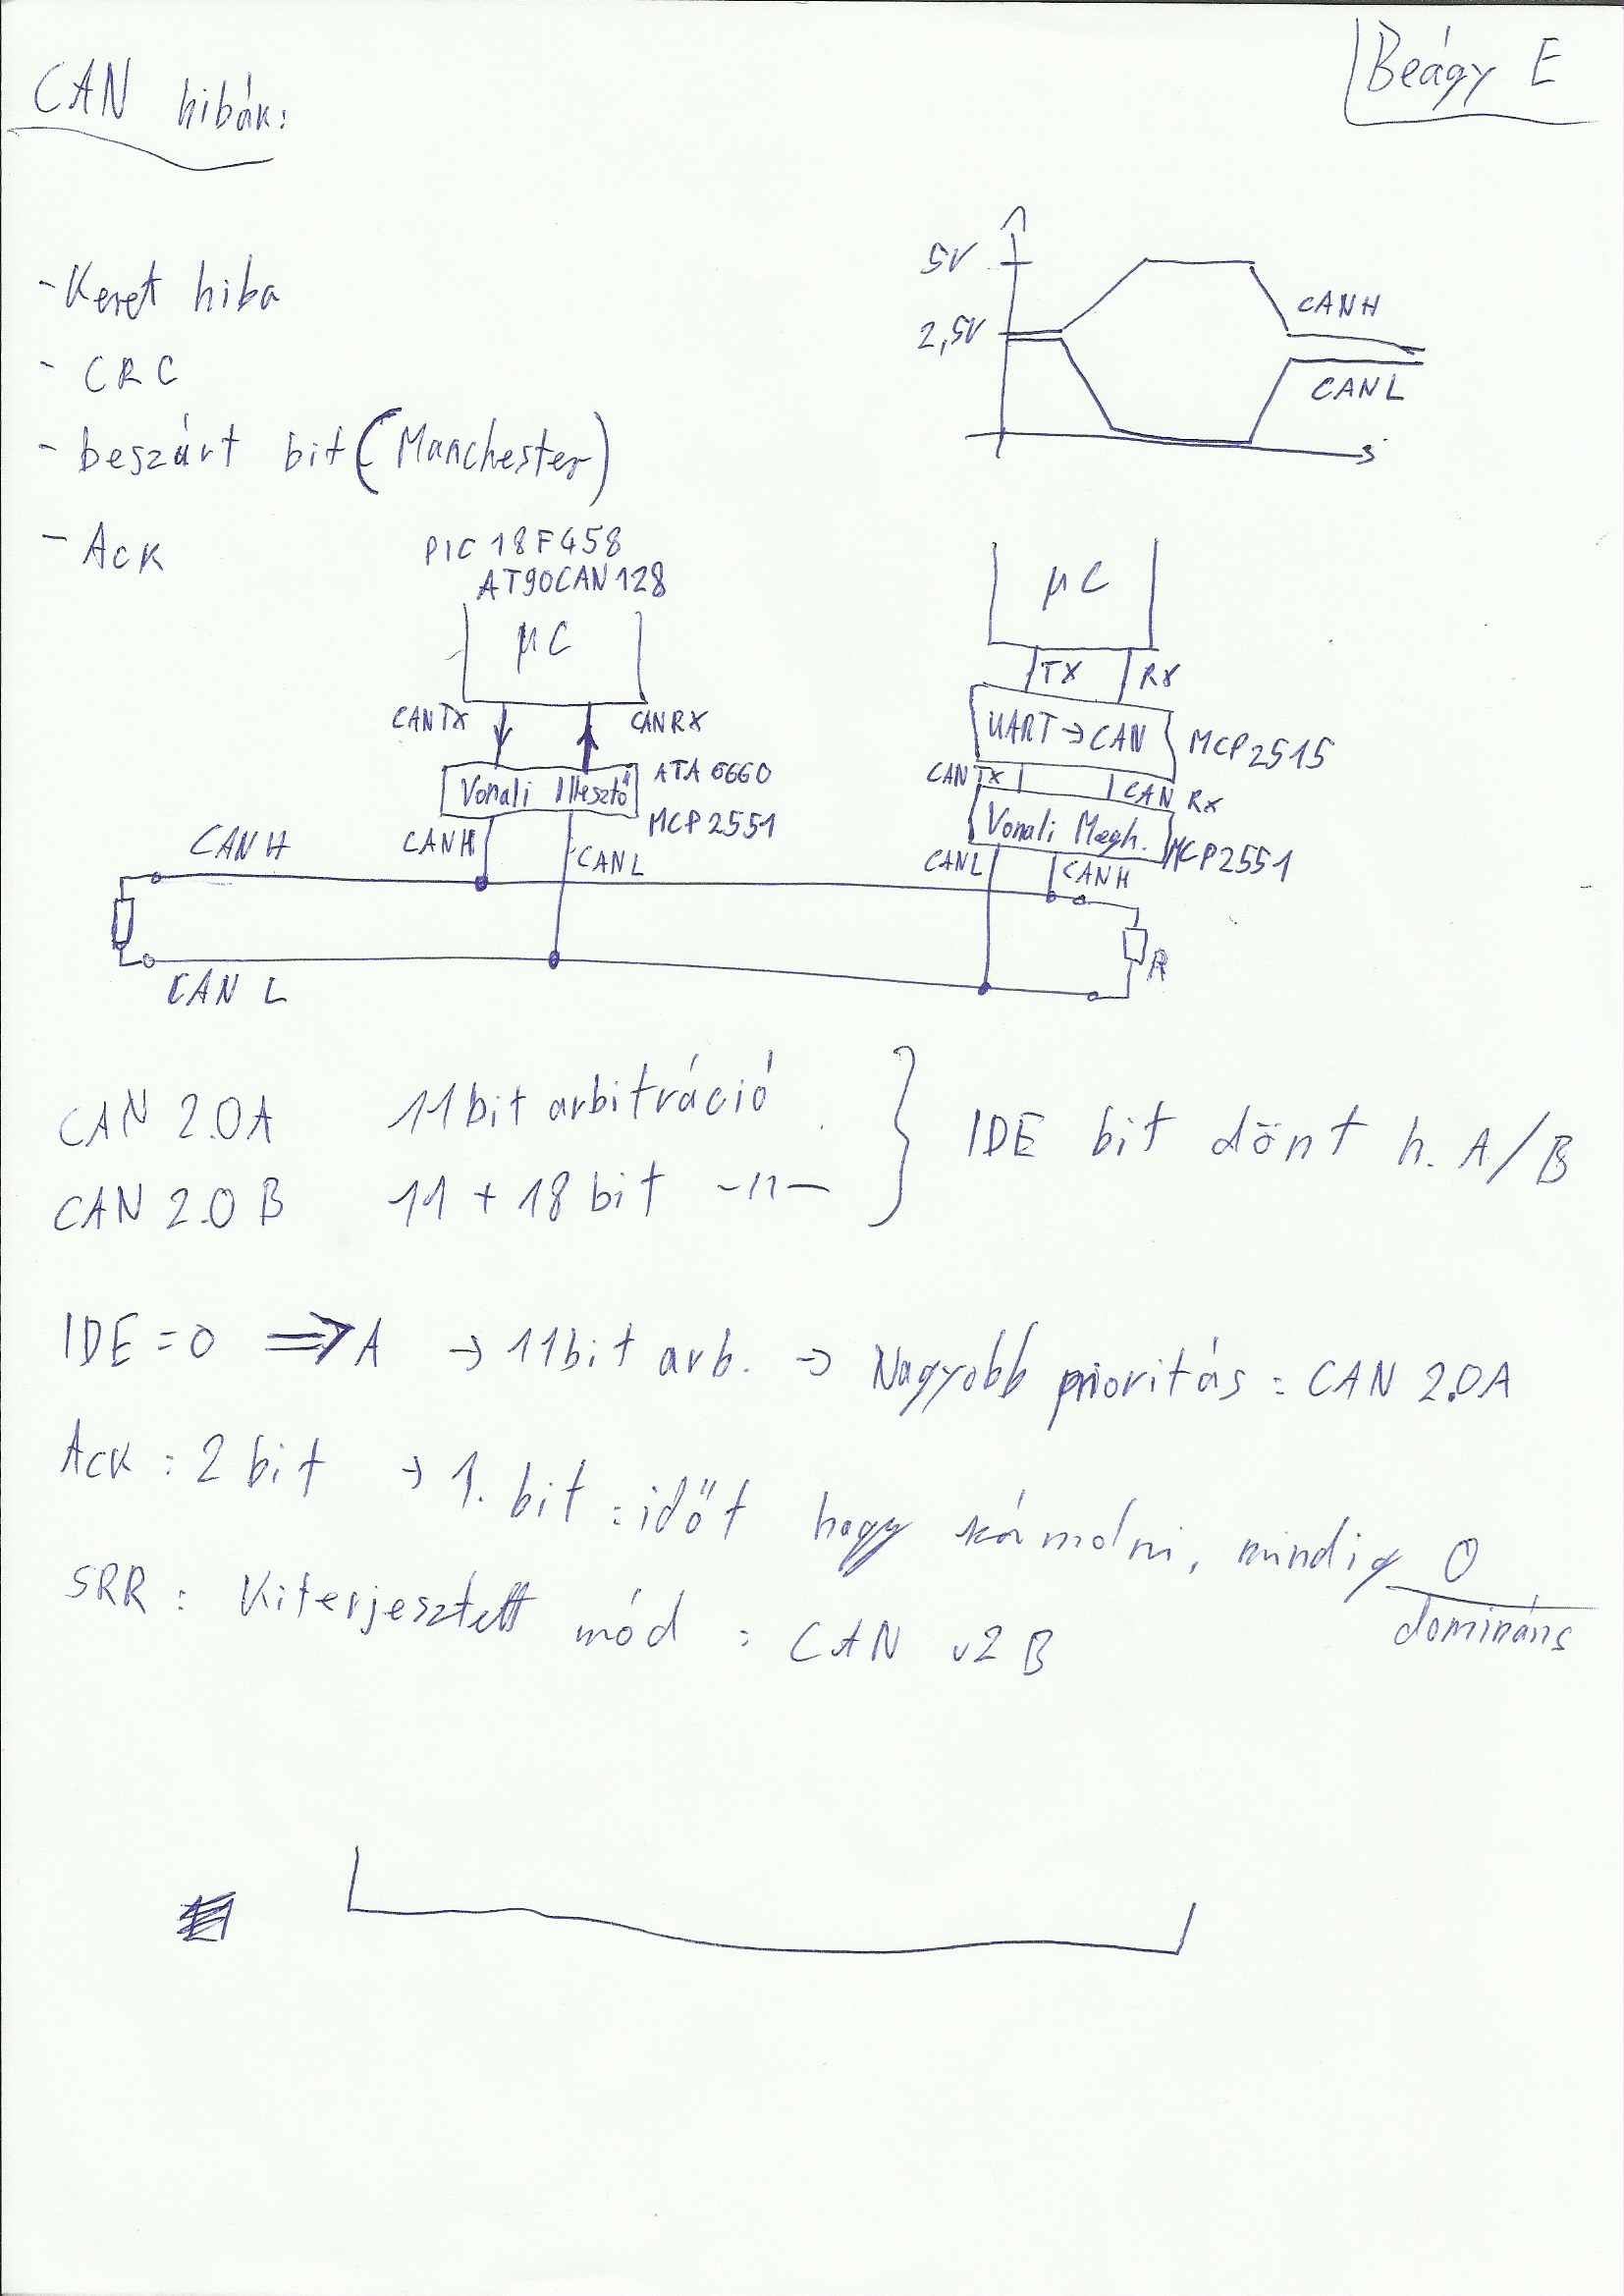 Beágy E
CAN hibák:
- Keret hiba
- CRC
- beszúrt bit (Manchester)
- Ack
5V
2,5V
CANH
CANL
s
PIC 18F458
AT90CAN128
µC
CANTX
CANRX
Vonali Illesztő
ATA 6660
MCP2551
CANH
CANL
µC
TX
RX
UART → CAN
MCP2515
CANTX
CAN RX
Vonali Megh.
MCP2551
CANL
CANH
CANH
CAN L
R
CAN 2.0A 11bit arbitráció
CAN 2.0B 11 + 18 bit -11-
IDE bit dönt h. A/B
IDE = 0 ⇒ A → 11bit arb. → Nagyobb prioritás : CAN 2.0A
Ack : 2 bit → 1. bit : időt hagy , mindig 0
domináns
SRR : Kiterjesztett mód : CAN v2 B